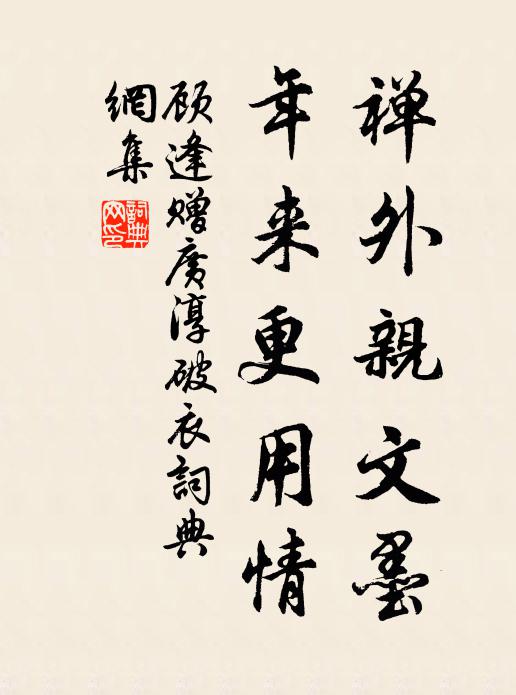 禅外親文墨
年来更用情
顾逢赠廣淳破衣詞典
網集
詞典
网印